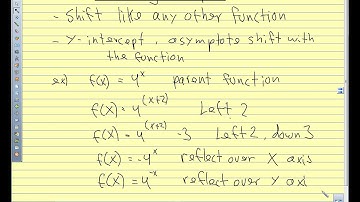 - Shift like any other function
- Y-intercept, asymptote shift with
the function
ex) f(x) = 4^x parent function
f(x) = 4^(x+2) Left 2
f(x) = 4^(x+2) -3 Left 2, down 3
f(x) = -4^x reflect over X axis
f(x) = 4^-x reflect over Y axi